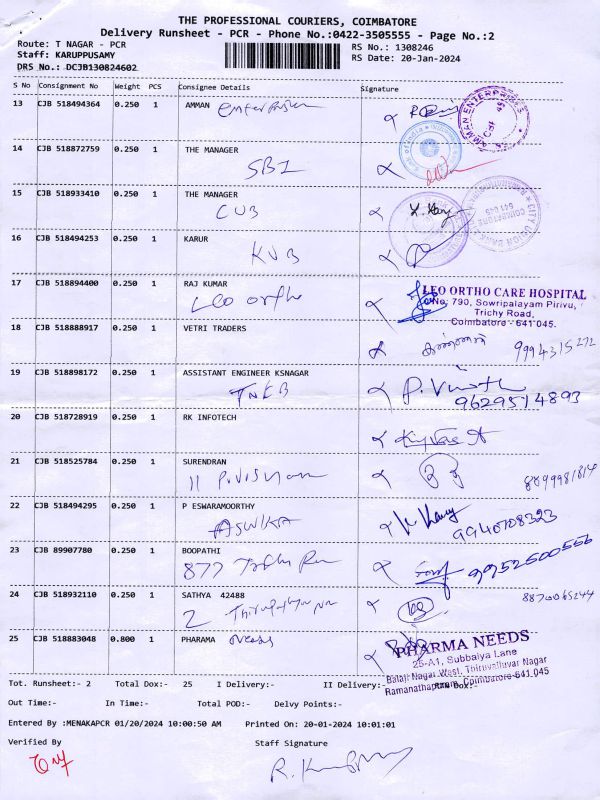 THE PROFESSIONAL COURIERS, COIMBATORE
Delivery Runsheet - PCR - Phone No.:0422-3505555 - Page No.:2
Route: T NAGAR - PCR RS No.: 1308246
Staff: KARUPPUSAMY RS Date: 20-Jan-2024
DRS No.: DCJB130824602
S No Consignment No Weight PCS Consignee Details Signature
13 CJB 518494364 0.250 1 AMMAN Enterprises
14 CJB 518872759 0.250 1 THE MANAGER
SBI
15 CJB 518933410 0.250 1 THE MANAGER
CUB
16 CJB 518494253 0.250 1 KARUR
KVB
17 CJB 518894400 0.250 1 RAJ KUMAR
Leo ortho
LEO ORTHO CARE HOSPITAL
No: 790, Sowripalayam Pirivu,
Trichy Road,
Coimbatore - 641 045.
18 CJB 518888917 0.250 1 VETRI TRADERS
19 CJB 518898172 0.250 1 ASSISTANT ENGINEER KSNAGAR
TNEB
9629514893
20 CJB 518728919 0.250 1 RK INFOTECH
21 CJB 518525784 0.250 1 SURENDRAN
22 CJB 518494295 0.250 1 P ESWARAMOORTHY
23 CJB 89907780 0.250 1 BOOPATHI
877
9952500556
24 CJB 518932110 0.250 1 SATHYA 42488
2
25 CJB 518883048 0.800 1 PHARAMA needs
PHARMA NEEDS
25-A1, Subbaiya Lane
Balaji Nagar West, Thiruvalluvar Nagar
Ramanathapuram, Coimbatore-641 045
Tot. Runsheet:- 2 Total Dox:- 25 I Delivery:- II Delivery:- Dox:-
Out Time:- In Time:- Total POD:- Delvy Points:-
Entered By :MENAKAPCR 01/20/2024 10:00:50 AM Printed On: 20-01-2024 10:01:01
Verified By Staff Signature